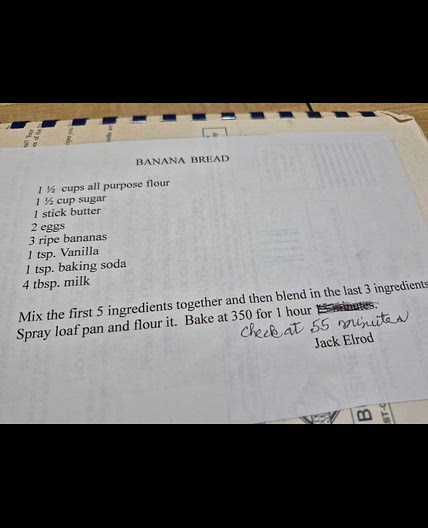 BANANA BREAD
1 ½ cups all purpose flour
1 ½ cup sugar
1 stick butter
2 eggs
3 ripe bananas
1 tsp. Vanilla
1 tsp. baking soda
4 tbsp. milk
Mix the first 5 ingredients together and then blend in the last 3 ingredients
Spray loaf pan and flour it. Bake at 350 for 1 hour 15 minutes.
Check at 55 minutes
Jack Elrod